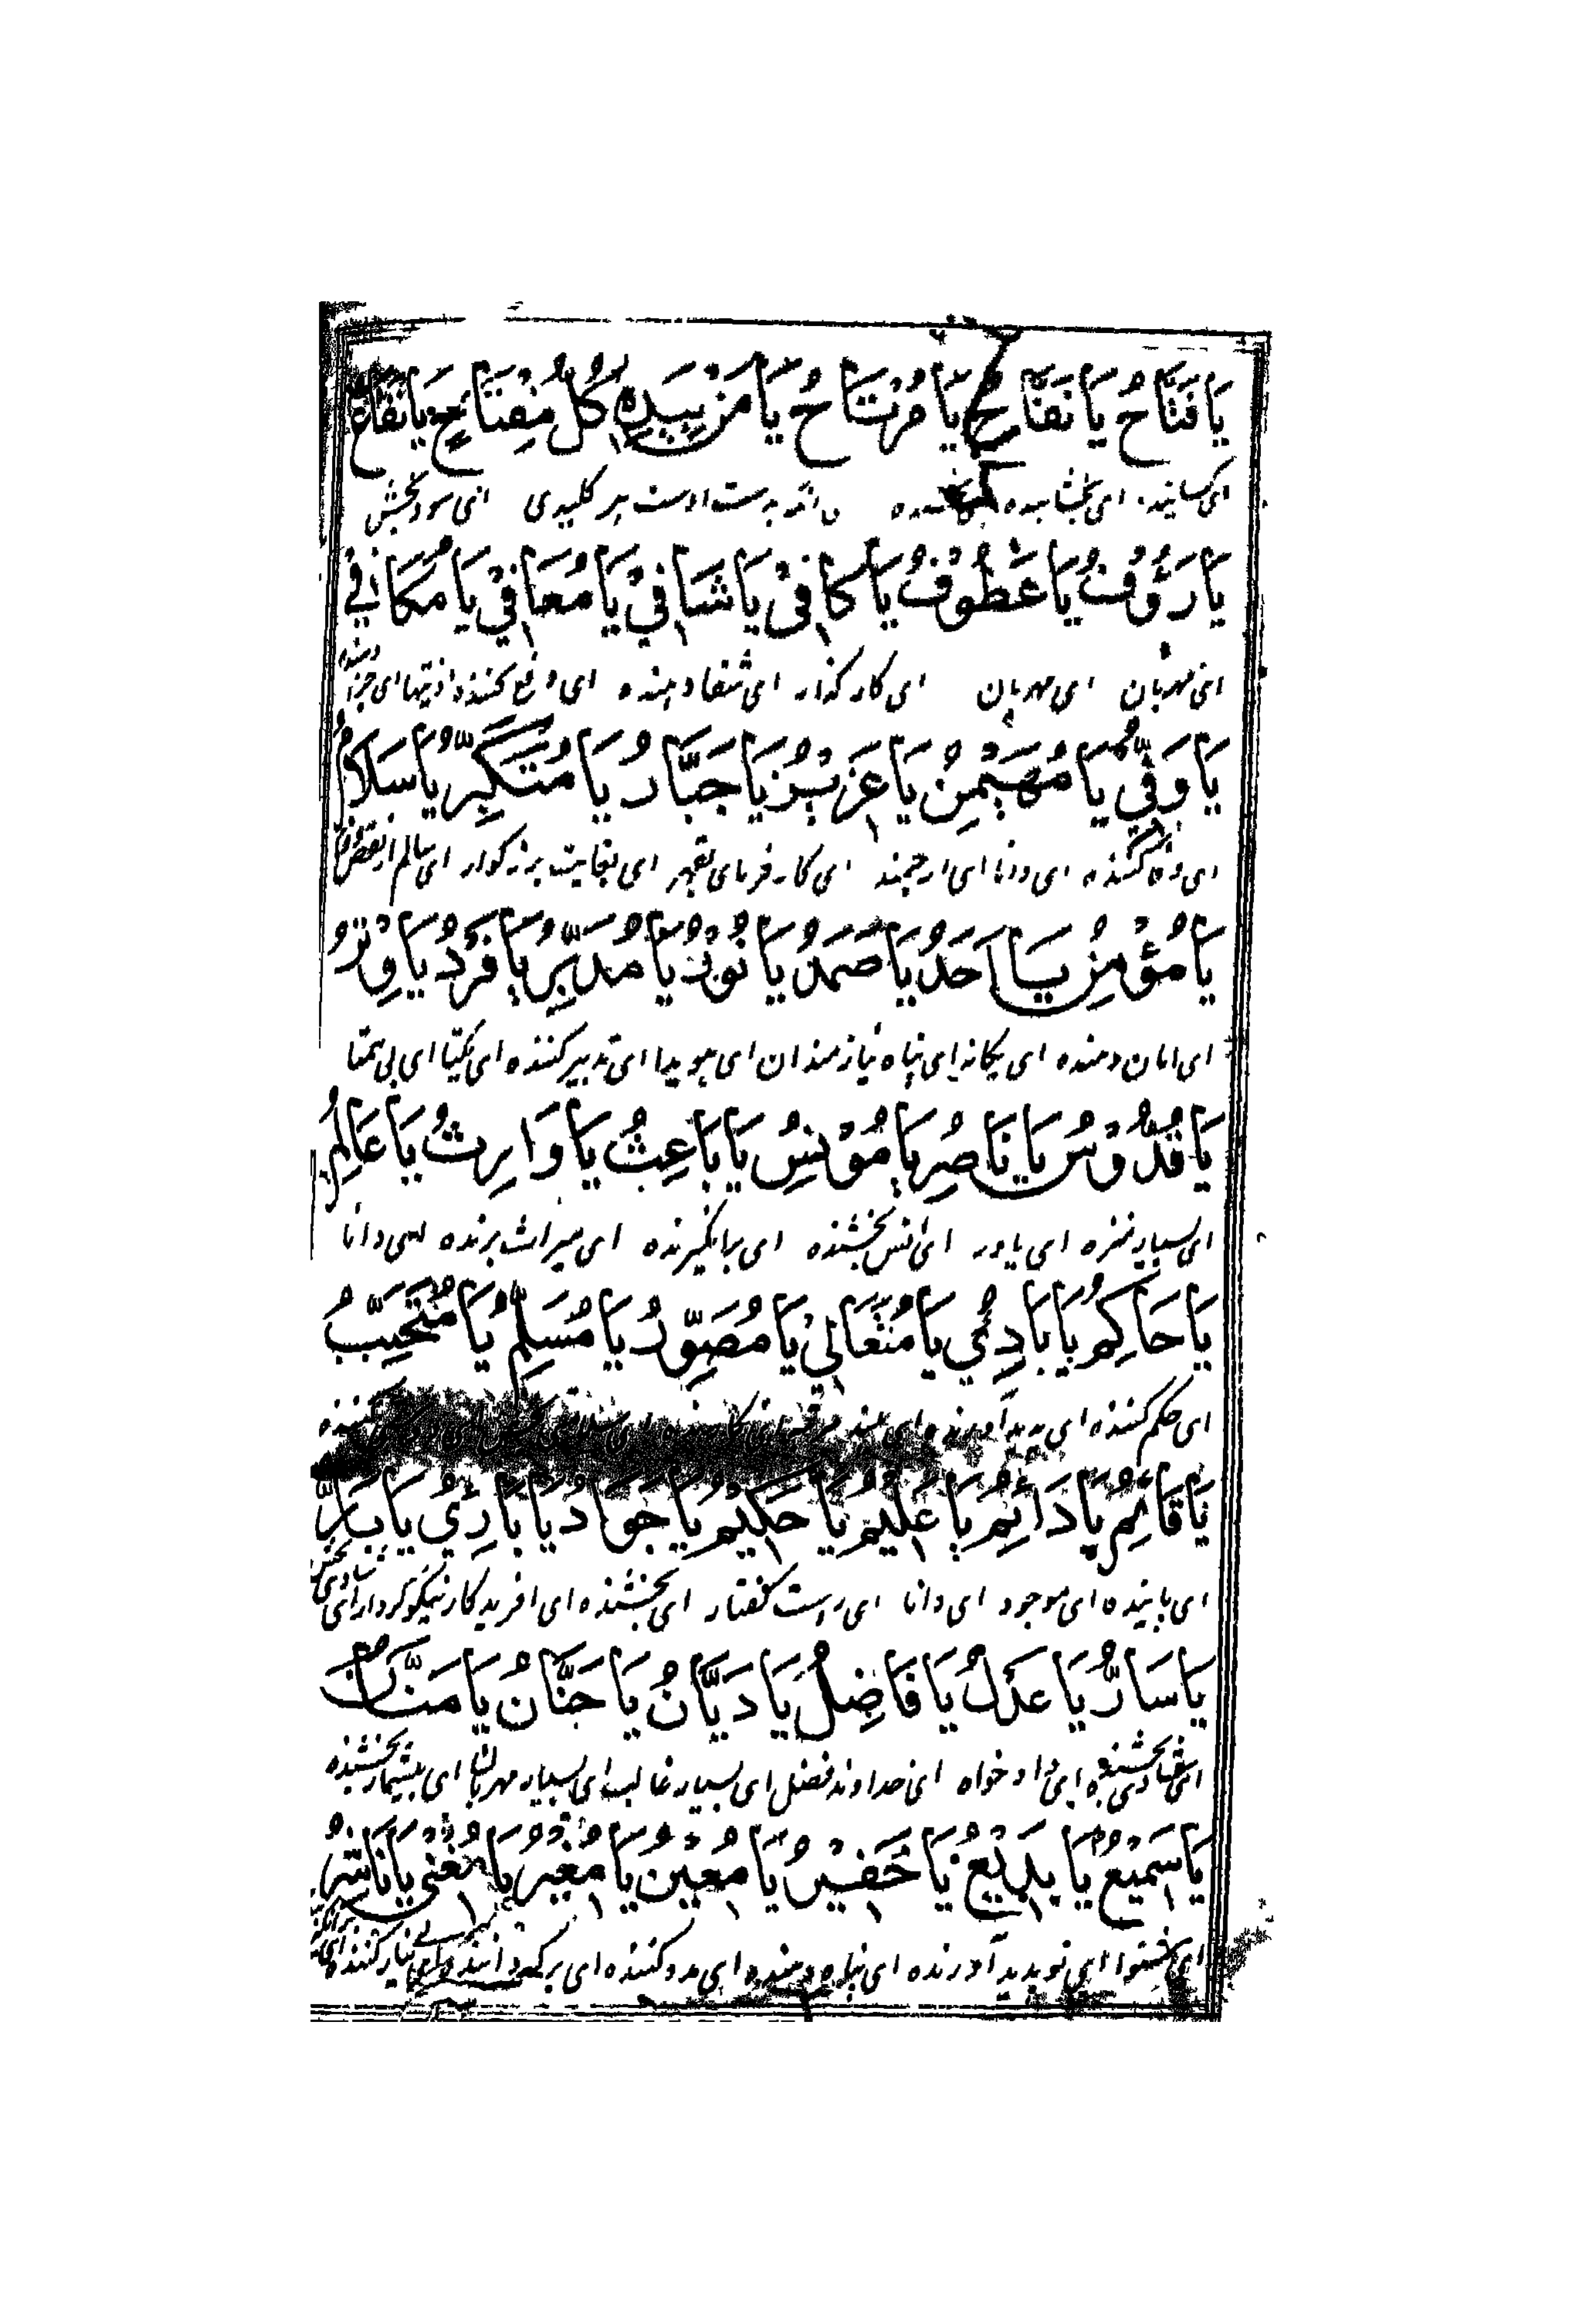 يَا فَتَّاحُ يَا نَفَّاحُ يَا مُرْتَاحُ يَا مَنْ بِيَدِهِ كُلُّ مِفْتَاحٍ يَا نَفَّاعُ
ای بخشاینده بدست اوست هر کلیدی ای سودبخش
يَا رَؤُوْفُ يَا عَطُوْفُ يَا كَافِيْ يَا شَافِيْ يَا مُعَافِيْ يَا مُكَافِيْ
ای مهربان ای مهربان ای کارگذار ای شفا دهنده ای دفع کننده اذیتها ای جزا دهنده
يَا وَفِيُّ يَا مُهَيْمِنُ يَا عَزِيْزُ يَا جَبَّارُ يَا مُتَكَبِّرُ يَا سَلَامُ
ای وفا کننده ای ارجمند ای کارفرمای بقهر ای بغایت بزرگوار ای سالم از نقص
يَا مُؤْمِنُ يَا اَحَدُ يَا صَمَدُ يَا نُوْرُ يَا مُدَبِّرُ يَا فَرْدُ يَا وِتْرُ
ای امان دهنده ای یگانه ای پناه نیازمندان ای هویدا ای تدبیر کننده ای یکتا ای بی همتا
يَا قُدُّوْسُ يَا نَاصِرُ يَا مُؤْنِسُ يَا بَاعِثُ يَا وَارِثُ يَا عَالِمُ
ای بسیار منزه ای یاور ای انس بخشنده ای برانگیزنده ای میراث برنده ای دانا
يَا حَاكِمُ يَا بَادِئُ يَا مُتَعَالِيْ يَا مُصَوِّرُ يَا مُسَلِّمُ يَا مُتَحَبِّبُ
ای حکم کننده ای پدید آورنده ای بلند مرتبه
يَا قَائِمُ يَا دَائِمُ يَا عَلِيْمُ يَا حَكِيْمُ يَا جَوَادُ يَا بَارِئُ يَا بَارُّ
ای پاینده ای موجود ای دانا ای راست گفتار ای بخشنده ای افریدگار نیکوکردار ای
يَا سَارُّ يَا عَدْلُ يَا فَاضِلُ يَا دَيَّانُ يَا حَنَّانُ يَا مَنَّانُ
ای شادی بخشنده ای داد خواه ای خداوند فضل ای بسیار غالب ای بسیار مهربان ای بیشمار بخشنده
يَا سَمِيْعُ يَا بَدِيْعُ يَا خَفِيْرُ يَا مُعِيْنُ يَا مُغَيِّرُ يَا مُغْنِيْ يَا نَاشِرُ
ای شنوا ای نو پدید آورنده ای پناه دهنده ای مدد کننده ای